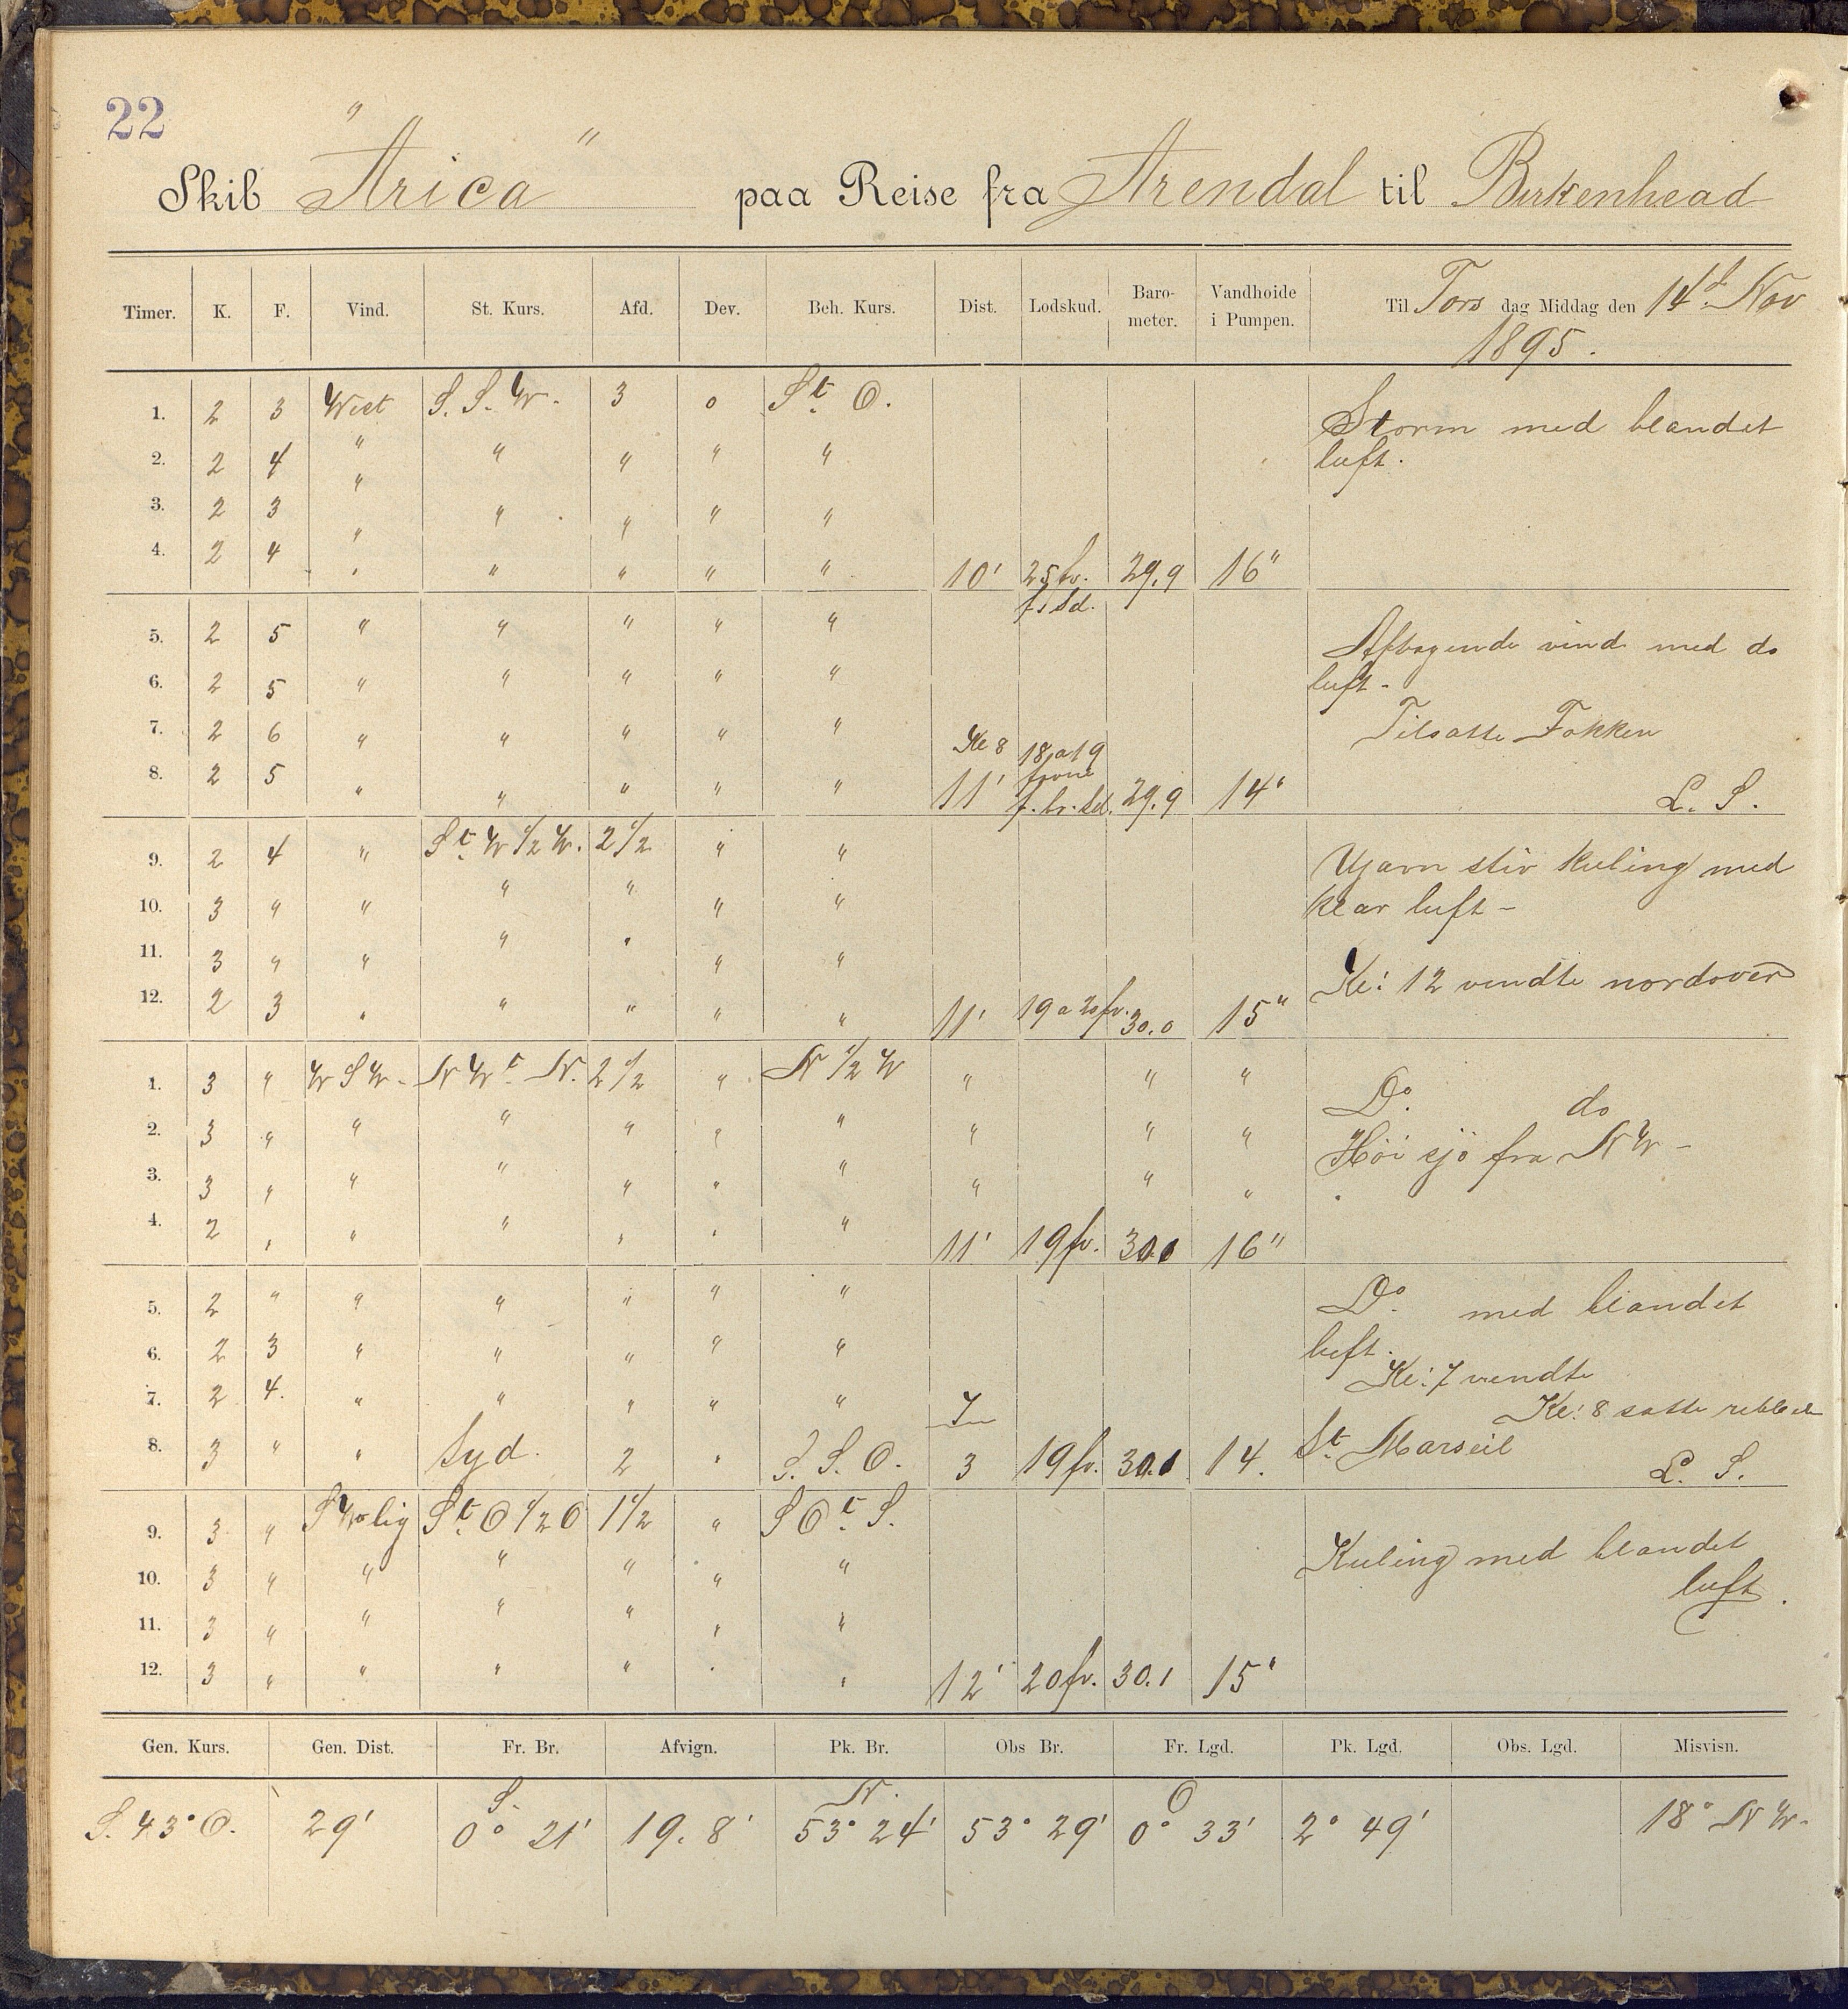 22
Skib "Arica" paa Reise fra Arendal til Birkenhead
Timer. K. F. Vind. St. Kurs. Afd. Dev. Beh. Kurs. Dist. Lodskud. Baro-meter. Vandhoide i Pumpen. Til Tors dag Middag den 14d Nov
1895.
1. 2 3 West S. S. W. 3 0 St. O. Storm med blandet
2. 2 4 " " " " " luft.
3. 2 3 " " " " "
4. 2 4 " " " " " 10' 25 fv. 29.9 16"
f. sd.
5. 2 5 " " " " " Aftagende vind med do
6. 2 5 " " " " " luft -
7. 2 6 " " " " " Kl 8 18 a 19 Tilsatte Fokken
favne
8. 2 5 " " " " " 11' f. br. sd. 29.9 14" L. S.
9. 2 4 " St. W 1/2 W. 2 1/2 " " Ujavn stiv Kuling med
10. 3 " " " " " " klar luft -
11. 3 " " " " " "
12. 2 3 " " " " " 11' 19 a 20 fv. 30.0 15" Kl: 12 vendte nordover
1. 3 " W S W - N W t. N. 2 1/2 " N 1/2 W " " " Do. do
2. 3 " " " " " " " " " Höi sjö fra N W -
3. 3 " " " " " " " " "
4. 2 " " " " " " 11' 19 fv. 30.1 16"
5. 2 " " " " " " Do. med blandet
6. 2 3 " " " " " luft.
7. 2 4. " " " " " 7 Kl: 7 vendte
Kl: 8 satte rebbede
8. 3 " " Syd. 2 " S. S. O. 3 19 fv. 30.1 14. St. Marseil L. S.
9. 3 " S Wolig St. O 1/2 O 1 1/2 " S O t. S. Kuling med blandet
10. 3 " " " " " " luft.
11. 3 " " " " " "
12. 3 " " " " " " 12' 20 fv. 30.1 15"
Gen. Kurs. Gen. Dist. Fr. Br. Afvign. Pk. Br. Obs Br. Fr. Lgd. Pk. Lgd. Obs. Lgd. Misvisn.
S. N. O
S. 43° O. 29' 0° 21' 19.8' 53° 24' 53° 29' 0° 33' 2° 49' 18° N W.